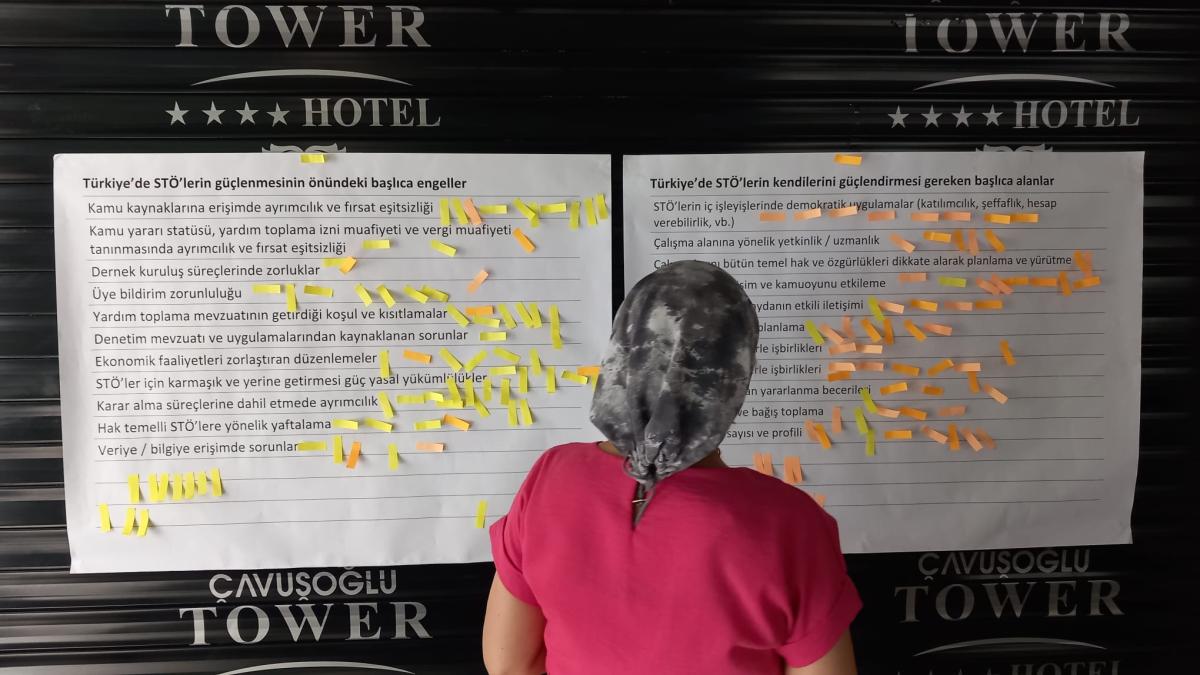 TOWER
★★★★ HOTEL
TOWER
★★★★ HOTEL
Türkiye'de STÖ'lerin güçlenmesinin önündeki başlıca engeller
Kamu kaynaklarına erişimde ayrımcılık ve fırsat eşitsizliği
Kamu yararı statüsü, yardım toplama izni muafiyeti ve vergi muafiyeti
tanınmasında ayrımcılık ve fırsat eşitsizliği
Dernek kuruluş süreçlerinde zorluklar
Üye bildirim zorunluluğu
Yardım toplama mevzuatının getirdiği koşul ve kısıtlamalar
Denetim mevzuatı ve uygulamalarından kaynaklanan sorunlar
Ekonomik faaliyetleri zorlaştıran düzenlemeler
STÖ'ler için karmaşık ve yerine getirmesi güç yasal yükümlülükler
Karar alma süreçlerine dahil etmede ayrımcılık
Hak temelli STÖ'lere yönelik yaftalama
Veriye / bilgiye erişimde sorunlar
Türkiye'de STÖ'lerin kendilerini güçlendirmesi gereken başlıca alanlar
STÖ'lerin iç işleyişlerinde demokratik uygulamalar (katılımcılık, şeffaflık, hesap
verebilirlik, vb.)
Çalışma alanına yönelik yetkinlik / uzmanlık
bütün temel hak ve özgürlükleri dikkate alarak planlama ve yürütme
ve kamuoyunu etkileme
etkili iletişimi
planlama
işbirlikleri
işbirlikleri
yararlanma becerileri
ve bağış toplama
sayısı ve profili
ÇAVUŞOĞLU
TOWER
ÇAVUŞOĞLU
TOWER
★★★★ HOTEL